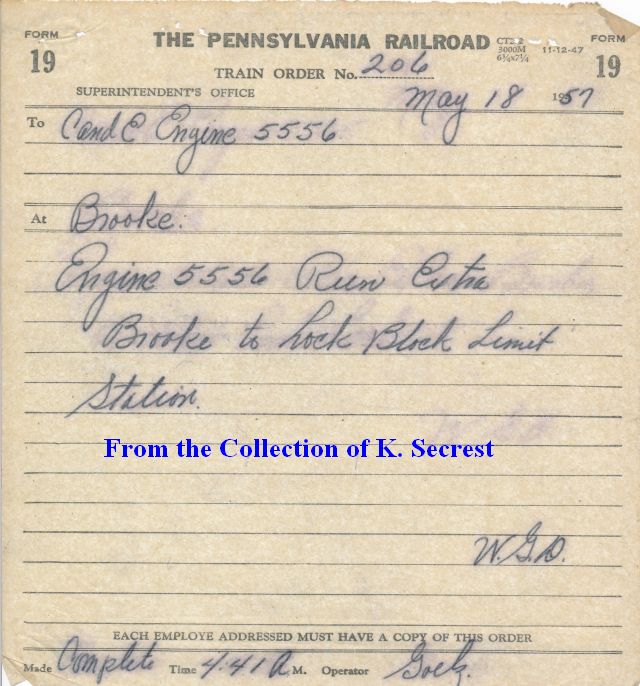 FORM 19
THE PENNSYLVANIA RAILROAD
CT212 3000M 6¾x7¼ 11-12-47
FORM 19
TRAIN ORDER No. 206
SUPERINTENDENT'S OFFICE May 18 1957
To C and E Engine 5556
At Brooke.
Engine 5556 Run Extra
Brooke to Lock Block Limit
Station.
From the Collection of K. Secrest
W.G.D.
EACH EMPLOYE ADDRESSED MUST HAVE A COPY OF THIS ORDER
Made Complete Time 4:41 A M. Operator